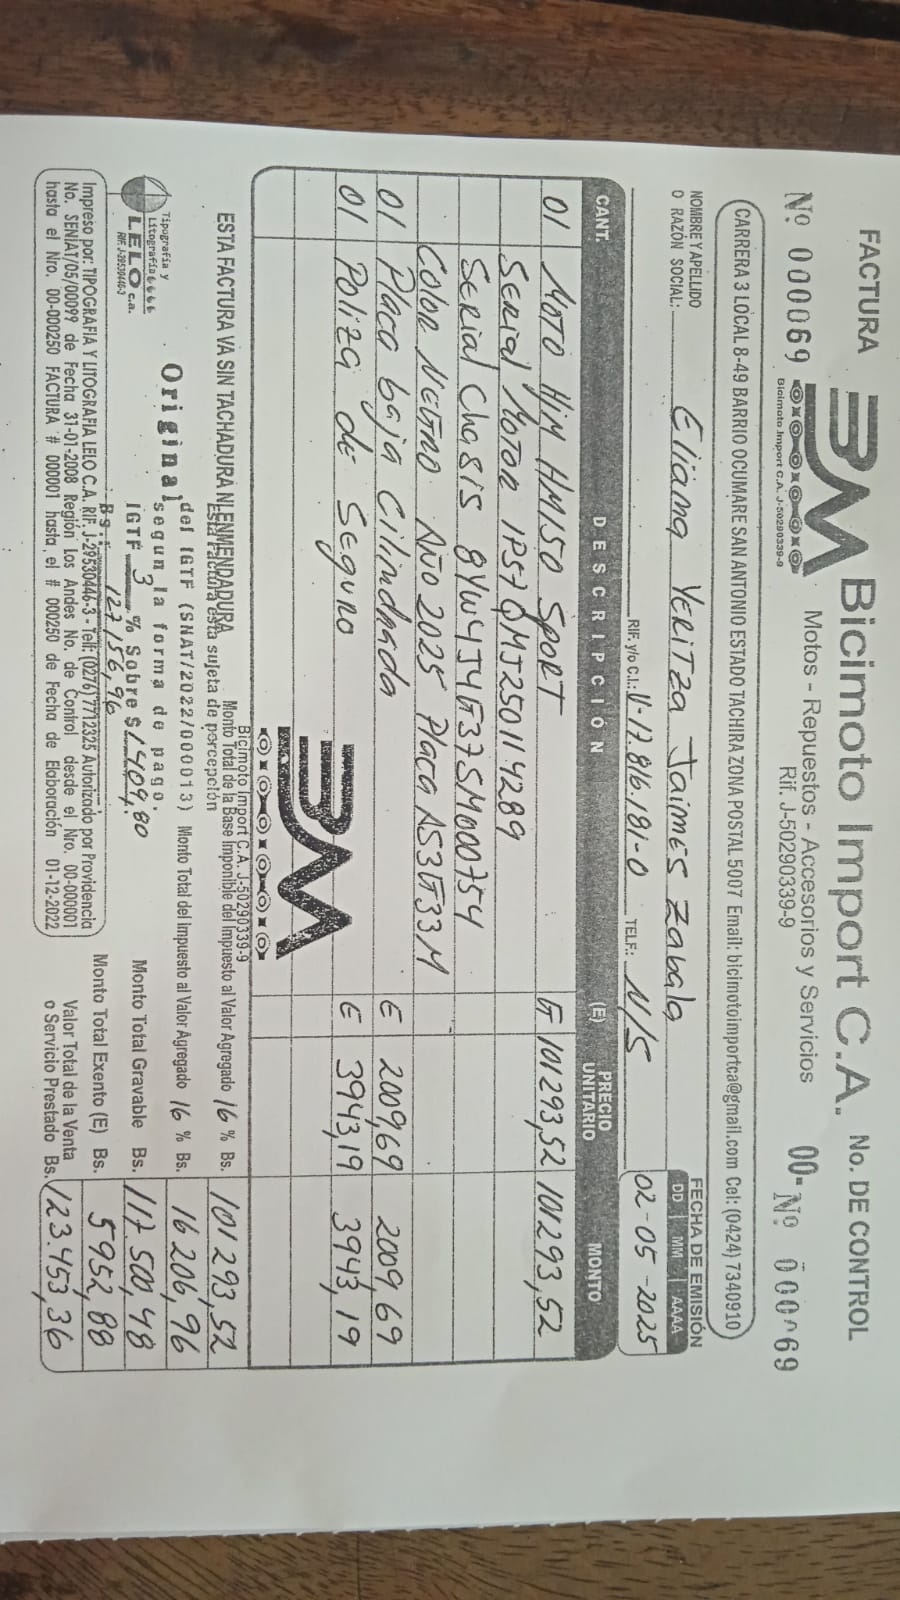 FACTURA
Nº 000069
BM
Bicimoto Import C.A. J-50290339-9
Bicimoto Import C.A.
Motos - Repuestos - Accesorios y Servicios
Rif. J-50290339-9
No. DE CONTROL
00-Nº 000069
CARRERA 3 LOCAL 8-49 BARRIO OCUMARE SAN ANTONIO ESTADO TACHIRA ZONA POSTAL 5007 Email: bicimotoimportca@gmail.com Cel: (0424) 7340910
NOMBRE Y APELLIDO O RAZÓN SOCIAL: Eliana Yeritza Jaimes Zabala
FECHA DE EMISIÓN
DD MM AAAA
RIF. y/o C.I.: V-17.816.181-0 TELF.: N/S 02-05-2025
CANT. DESCRIPCIÓN (E) PRECIO UNITARIO MONTO
01 Moto HJM HM150 Sport G 101293,52 101293,52
Serial Motor
Serial Chasis
Color Negro Año 2025 Placa AS3G33M
01 Placa baja Cilindrada E 2009,69 2009,69
01 Poliza de Seguro E 3943,19 3943,19
BM
Bicimoto Import C.A. J-50290339-9
ESTA FACTURA VA SIN TACHADURA NI ENMENDADURA
Monto Total de la Base Imponible del Impuesto al Valor Agregado 16 % Bs. 101293,52
Esta factura esta sujeta de percepción
del IGTF (SNAT/2022/000013)
Monto Total del Impuesto al Valor Agregado 16 % Bs. 16206,96
Original
segun la forma de pago:
IGTF 3 % Sobre $ 1409,80
Monto Total Gravable Bs. 117.500,48
Bs.: 127,156,96
Monto Total Exento (E) Bs. 5952,88
Valor Total de la Venta o Servicio Prestado Bs. 123.453,36
Tipografía y Litografía
LELO c.a.
RIF. J-29530446-3
Impreso por: TIPOGRAFIA Y LITOGRAFIA LELO C.A. RIF. J-29530446-3 - Telf: (0276) 7712325 Autorizado por Providencia
No. SENIAT/05/00099 de Fecha 31-01-2008 Región Los Andes No. de Control desde el Nro. 00-000001
hasta el Nro. 00-000250 FACTURA # 000001 hasta el # 000250 de Fecha de Elaboración 01-12-2022